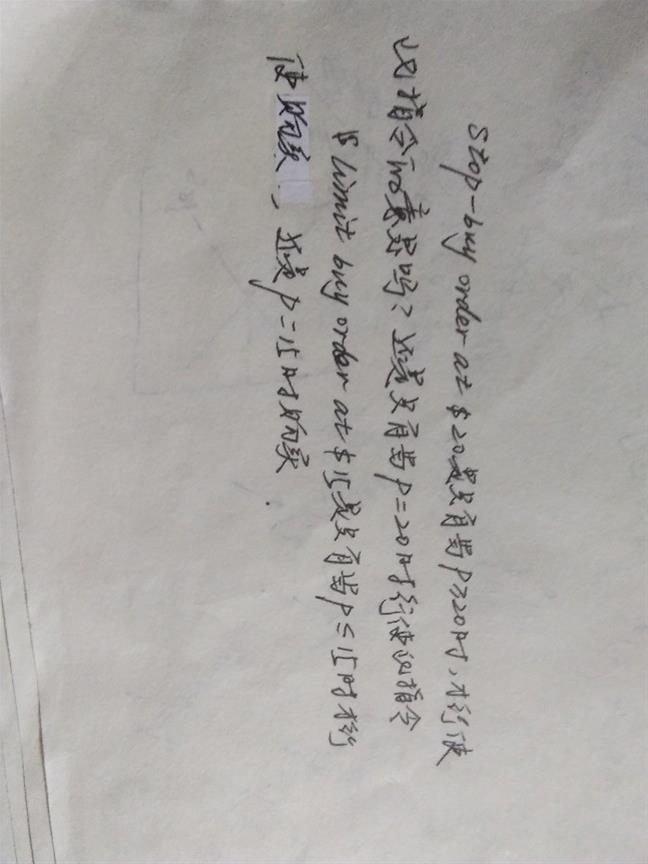 Stop-buy order at $20是只有当P≥20时,才行使
此指令而卖吗?还是只有当P=20时行使的指令
$ limit buy order at $15是只有当P≤15时才行
使购买,还是P=15时购买.